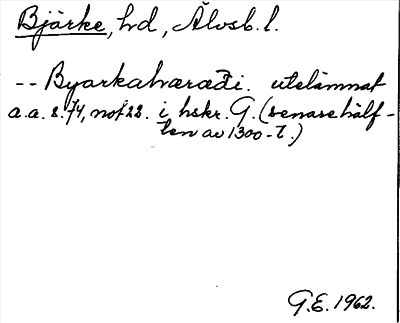 Bjärke, hd, Älvsb. l.
-- Byarkahæraði. utelämnat
a.a. s. 74, not 22. i hskr. G. (senare hälf-
ten av 1300-t.)
G.E. 1962.